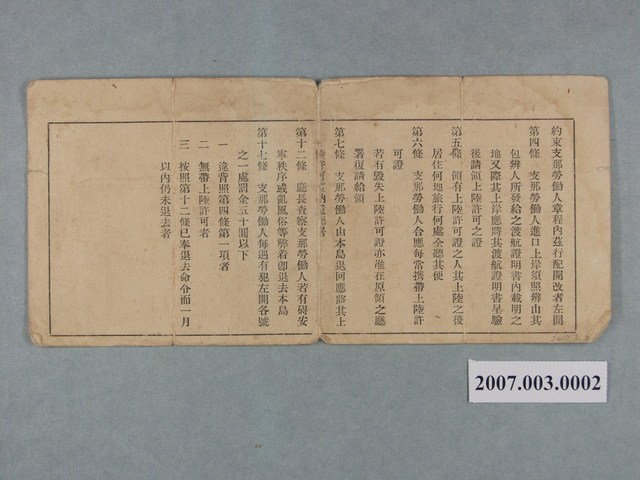 約束支那勞働人章程內茲行配開改者左開
第四條　支那勞働人進口上岸須照辨由其
包辨人所發給之渡航證明書內載明之
地又際其上岸應將其渡航證明書呈驗
後請領上陸許可之證
第五條　領有上陸許可證之人其上陸之後
居住何地旅行何處全聽其便
第六條　支那勞働人合應每常攜帶上陸許
可證
若有毀失上陸許可證亦准在原領之廳
署復請給領
第七條　支那勞働人由本島退回應將其上
第十二條　廳長查察支那勞働人若有碍安
寧秩序或亂風俗等弊着卽退去本島
第十七條　支那勞働人每遇有犯左開各號
之一處罰金五十圓以下
一　違背照第四條第一項者
二　無帶上陸許可者
三　按照第十二條已奉退去命令而一月
以內仍未退去者
2007.003.0002